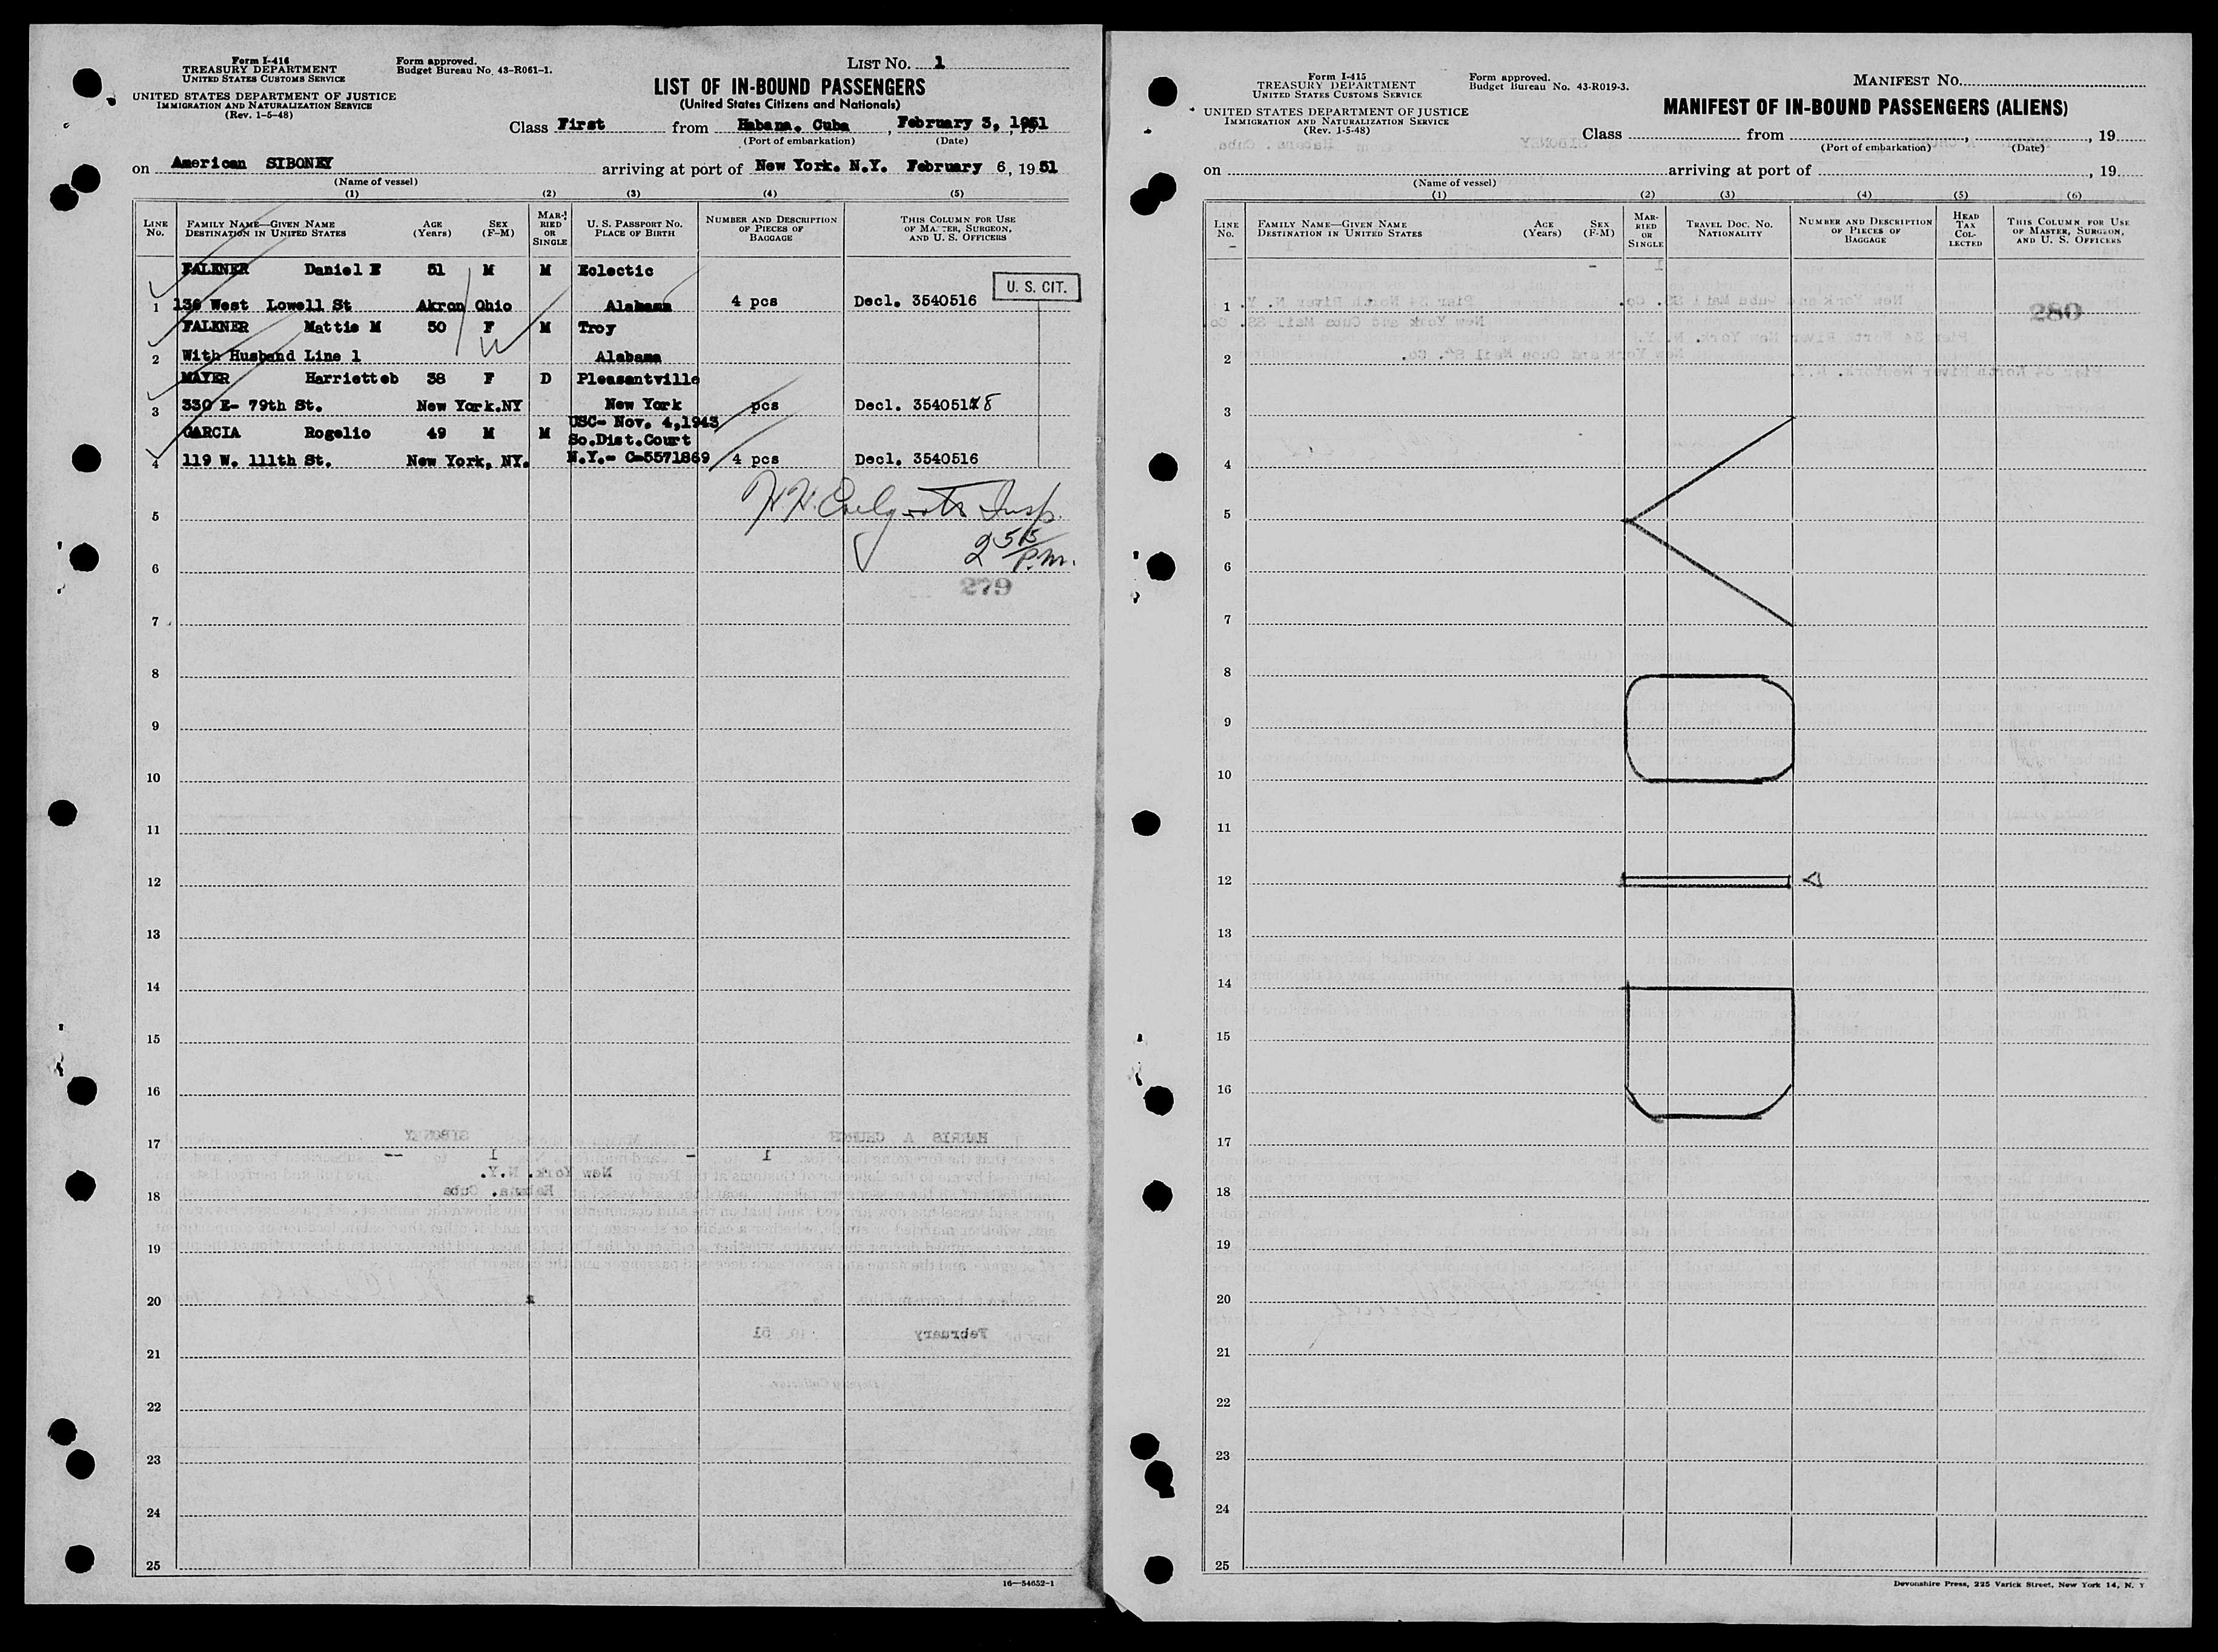 Form I-416
TREASURY DEPARTMENT
UNITED STATES CUSTOMS SERVICE
UNITED STATES DEPARTMENT OF JUSTICE
IMMIGRATION AND NATURALIZATION SERVICE
(Rev. 1-5-48)
Form approved.
Budget Bureau No. 43-R061-1.
LIST No. 1
LIST OF IN-BOUND PASSENGERS
(United States Citizens and Nationals)
Class First from Habana, Cuba, February 3, 1951
(Port of embarkation) (Date)
on American SIBONEY arriving at port of New York. N.Y. February 6, 1951
(Name of vessel)
(1) (2) (3) (4) (5)
LINE No. FAMILY NAME—GIVEN NAME DESTINATION IN UNITED STATES AGE (Years) SEX (F-M) MARRIED OR SINGLE U. S. PASSPORT No. PLACE OF BIRTH NUMBER AND DESCRIPTION OF PIECES OF BAGGAGE THIS COLUMN FOR USE OF MASTER, SURGEON, AND U. S. OFFICERS
FALKNER Daniel E 51 M M Eclectic
U. S. CIT.
1 136 West Lowell St Akron Ohio Alabama 4 pcs Decl. 3540516
FALKNER Mattie M 50 F M Troy
2 With Husband Line 1 Alabama
MAYER Harrietteb 38 F D Pleasantville
3 330 E- 79th St. New York.NY New York pcs Decl. 3540518
USC- Nov. 4,1943
GARCIA Rogelio 49 M M So.Dist.Court
4 119 W. 111th St. New York, NY. N.Y.- C-5571869 4 pcs Decl. 3540516
5
Insp.
2 515/P.M.
6
279
7
8
9
10
11
12
13
14
15
16
17
18
19
20
21
22
23
24
25
16—54652-1
Form I-415
TREASURY DEPARTMENT
UNITED STATES CUSTOMS SERVICE
UNITED STATES DEPARTMENT OF JUSTICE
IMMIGRATION AND NATURALIZATION SERVICE
(Rev. 1-5-48)
Form approved.
Budget Bureau No. 43-R019-3.
MANIFEST No.
MANIFEST OF IN-BOUND PASSENGERS (ALIENS)
Class from , , 19
(Port of embarkation) (Date)
on arriving at port of , 19
(Name of vessel)
(1) (2) (3) (4) (5) (6)
LINE No. FAMILY NAME—GIVEN NAME DESTINATION IN UNITED STATES AGE (Years) SEX (F-M) MARRIED OR SINGLE TRAVEL DOC. No. NATIONALITY NUMBER AND DESCRIPTION OF PIECES OF BAGGAGE HEAD TAX COLLECTED THIS COLUMN FOR USE OF MASTER, SURGEON, AND U. S. OFFICERS
1
280
2
3
4
5
6
7
8
9
10
11
12
13
14
15
16
17
18
19
20
21
22
23
24
25
Devonshire Press, 225 Varick Street, New York 14, N. Y